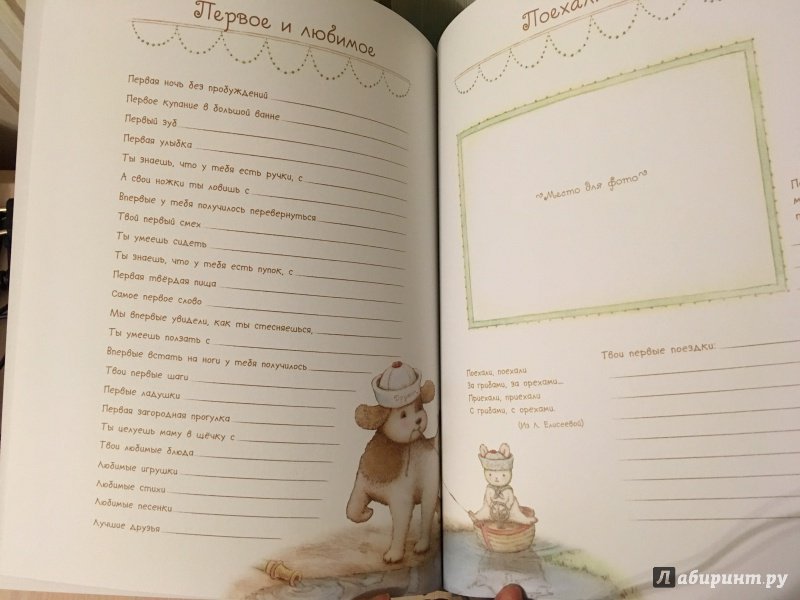 Первое и любимое
Первая ночь без пробуждений
Первое купание в большой ванне
Первый зуб
Первая улыбка
Ты знаешь, что у тебя есть ручки, с
А свои ножки ты ловишь с
Впервые у тебя получилось перевернуться
Твой первый смех
Ты умеешь сидеть
Ты знаешь, что у тебя есть пупок, с
Первая твёрдая пища
Самое первое слово
Мы впервые увидели, как ты стесняешься,
Ты умеешь ползать с
Впервые встать на ноги у тебя получилось
Твои первые шаги
Первые ладушки
Первая загородная прогулка
Ты целуешь маму в щёчку с
Твои любимые блюда
Любимые игрушки
Любимые стихи
Любимые песенки
Лучшие друзья
Поехал
Место для фото
Поехали, поехали
За грибами, за орехами...
Приехали, приехали
С грибами, с орехами.
(Из Л. Елисеевой)
Твои первые поездки:
Лабиринт.ру